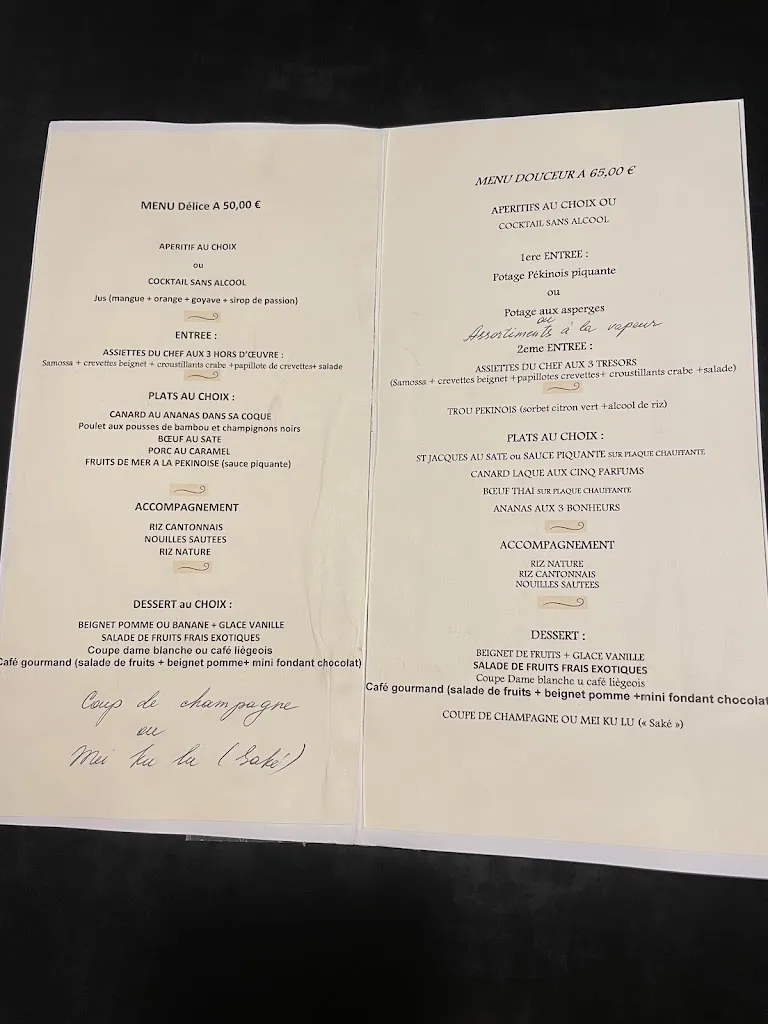 MENU Délice A 50,00 €
APERITIF AU CHOIX
ou
COCKTAIL SANS ALCOOL
Jus (mangue + orange + goyave + sirop de passion)
ENTREE :
ASSIETTES DU CHEF AUX 3 HORS D'ŒUVRE :
Samossa + crevettes beignet + croustillants crabe +papillote de crevettes+ salade
PLATS AU CHOIX :
CANARD AU ANANAS DANS SA COQUE
Poulet aux pousses de bambou et champignons noirs
BŒUF AU SATE
PORC AU CARAMEL
FRUITS DE MER A LA PEKINOISE (sauce piquante)
ACCOMPAGNEMENT
RIZ CANTONNAIS
NOUILLES SAUTEES
RIZ NATURE
DESSERT au CHOIX :
BEIGNET POMME OU BANANE + GLACE VANILLE
SALADE DE FRUITS FRAIS EXOTIQUES
Coupe dame blanche ou café liégeois
Café gourmand (salade de fruits + beignet pomme+ mini fondant chocolat)
Coup de champagne
ou
Mei ku lu (Saké)
MENU DOUCEUR A 65,00 €
APERITIFS AU CHOIX OU
COCKTAIL SANS ALCOOL
1ere ENTREE :
Potage Pékinois piquante
ou
Potage aux asperges
ou
Assortiments à la vapeur
2eme ENTREE :
ASSIETTES DU CHEF AUX 3 TRESORS
(Samossa + crevettes beignet +papillotes crevettes+ croustillants crabe +salade)
TROU PEKINOIS (sorbet citron vert +alcool de riz)
PLATS AU CHOIX :
ST JACQUES AU SATE ou SAUCE PIQUANTE SUR PLAQUE CHAUFFANTE
CANARD LAQUE AUX CINQ PARFUMS
BŒUF THAI SUR PLAQUE CHAUFFANTE
ANANAS AUX 3 BONHEURS
ACCOMPAGNEMENT
RIZ NATURE
RIZ CANTONNAIS
NOUILLES SAUTEES
DESSERT :
BEIGNET DE FRUITS + GLACE VANILLE
SALADE DE FRUITS FRAIS EXOTIQUES
Coupe Dame blanche u café liègeois
Café gourmand (salade de fruits + beignet pomme +mini fondant chocolat
COUPE DE CHAMPAGNE OU MEI KU LU (« Saké »)